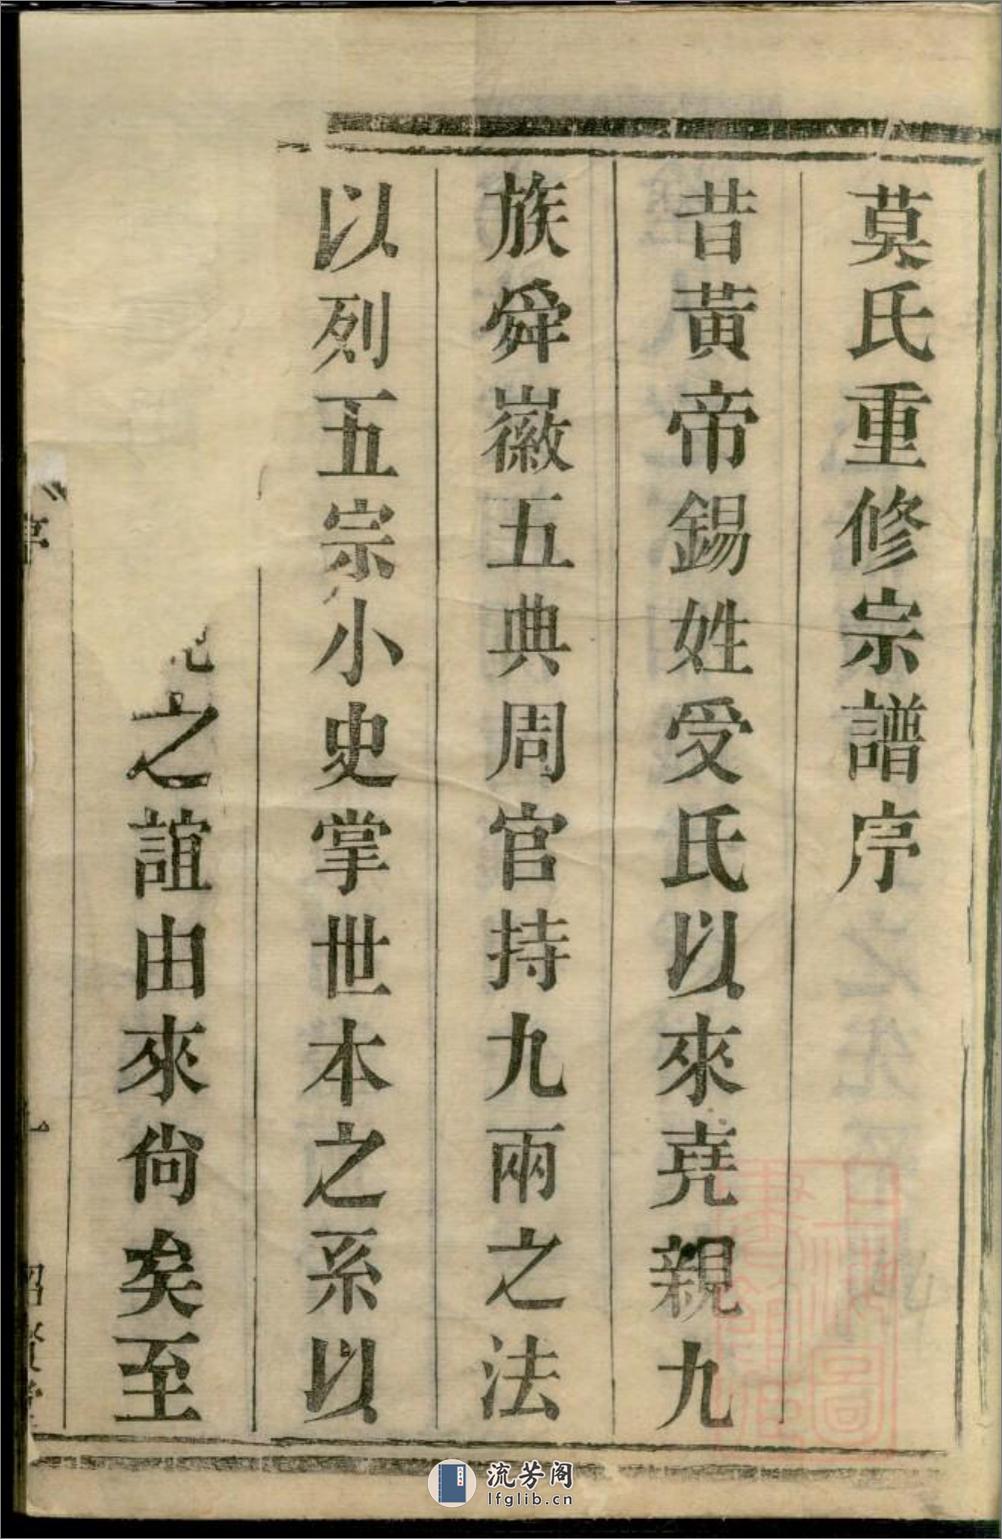 莫氏重修宗譜序
昔黃帝錫姓受氏以來堯親九
族舜徽五典周官持九兩之法
以列五宗小史掌世本之系以
之誼由來尙矣至
序
一
流芳阁
lfglib.cn